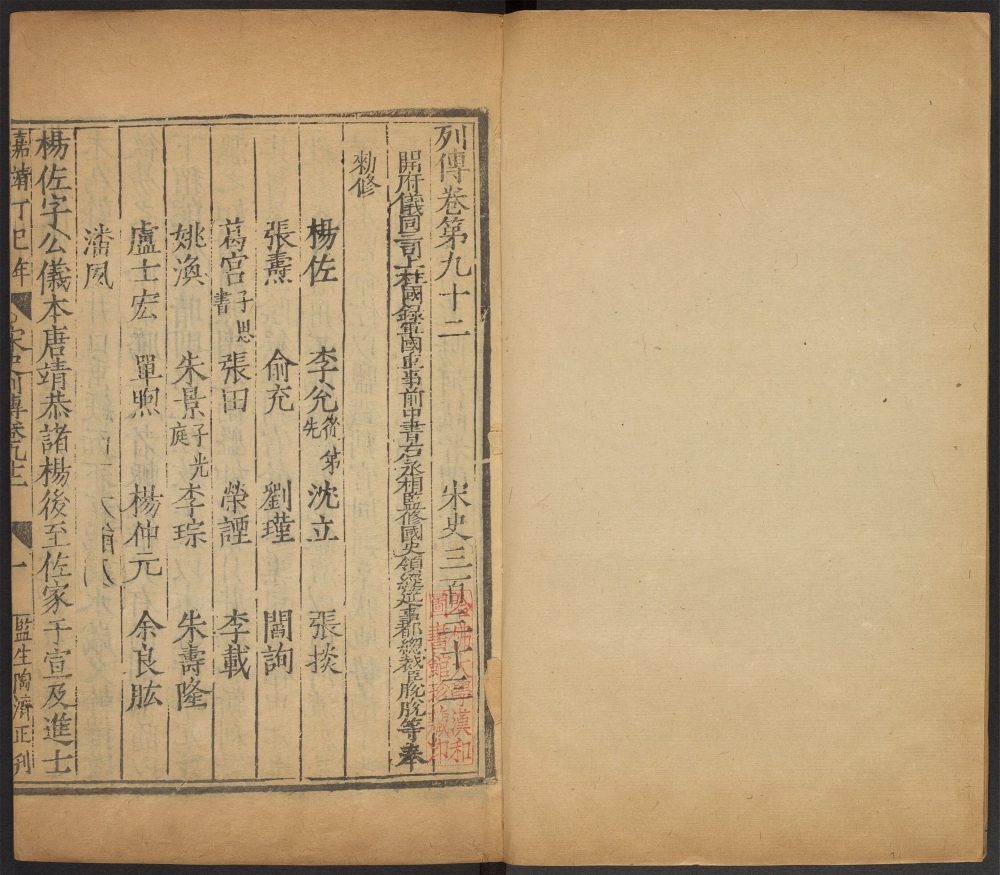 列傳卷第九十二 宋史三百三十三
開府儀同三司上柱國錄軍國重事前中書右丞相監修國史領經筵事都總裁臣脫脫等奉
勑修
楊佐 李兌從弟先 沈立 張掞
張燾 俞充 劉瑾 閻詢
葛宮子思書 張田 榮諲 李載
姚渙 朱景子光庭 李琮 朱壽隆
盧士宏 單煦 楊仲元 余良肱
潘夙
楊佐字公儀本唐靖恭諸楊後至佐家于宣及進士
嘉靖丁巳年 宋史列傳卷九十二 一 監生陶濟正刊
哈佛大學漢和圖書館珍藏印